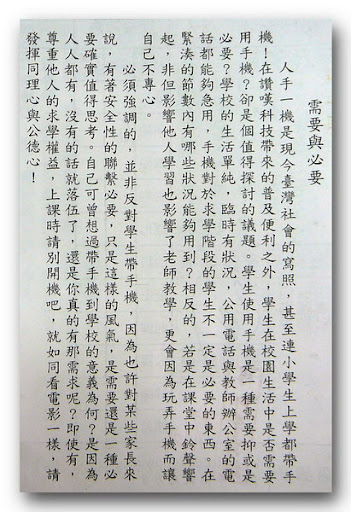 需要與必要
人手一機是現今臺灣社會的寫照，甚至連小學生上學都帶手
機！在讚嘆科技帶來的普及便利之外，學生在校園生活中是否需要
用手機？卻是個值得探討的議題。學生使用手機是一種需要抑或是
必要？學校的生活單純，臨時有狀況，公用電話與教師辦公室的電
話都能夠急用，手機對於求學階段的學生不一定是必要的東西。在
緊湊的節數內有哪些狀況能夠用到？相反的，若是在課堂中鈴聲響
起，非但影響他人學習也影響了老師教學，更會因為玩弄手機而讓
自己不專心。
必須強調的，並非反對學生帶手機，因為也許對某些家長來
說，有著安全性的聯繫必要，只是這樣的風氣，是需要還是一種必
要確實值得思考。自己可曾想過帶手機到學校的意義為何？是因為
人人都有，沒有的話就落伍了，還是你真的有那需求呢？即使有，
尊重他人的求學權益，上課時請別開機吧，就如同看電影一樣，請
發揮同理心與公德心！